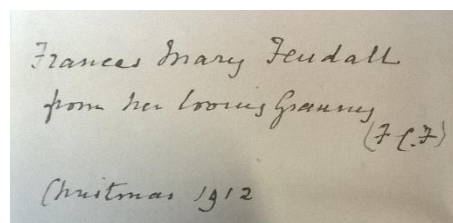 Frances Mary Fendall
from her loving Granny
(F C. F)
Christmas 1912